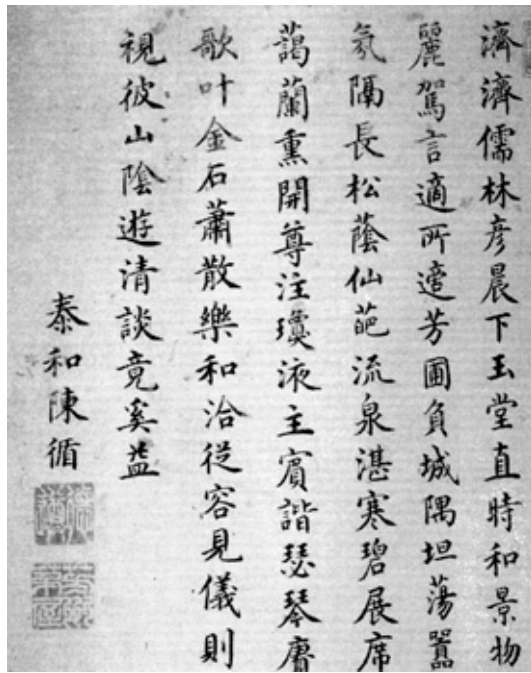 濟濟儒林彦晨下玉堂直時和景物
麗駕言適所適芳圃負城隅坦蕩囂
氛隔長松蔭仙葩流泉湛寒碧展席
藹蘭熏開尊注瓊液主賓諧瑟琴賡
歌叶金石蕭散樂和洽從容見儀則
視彼山陰遊清談竟奚益
泰和陳循